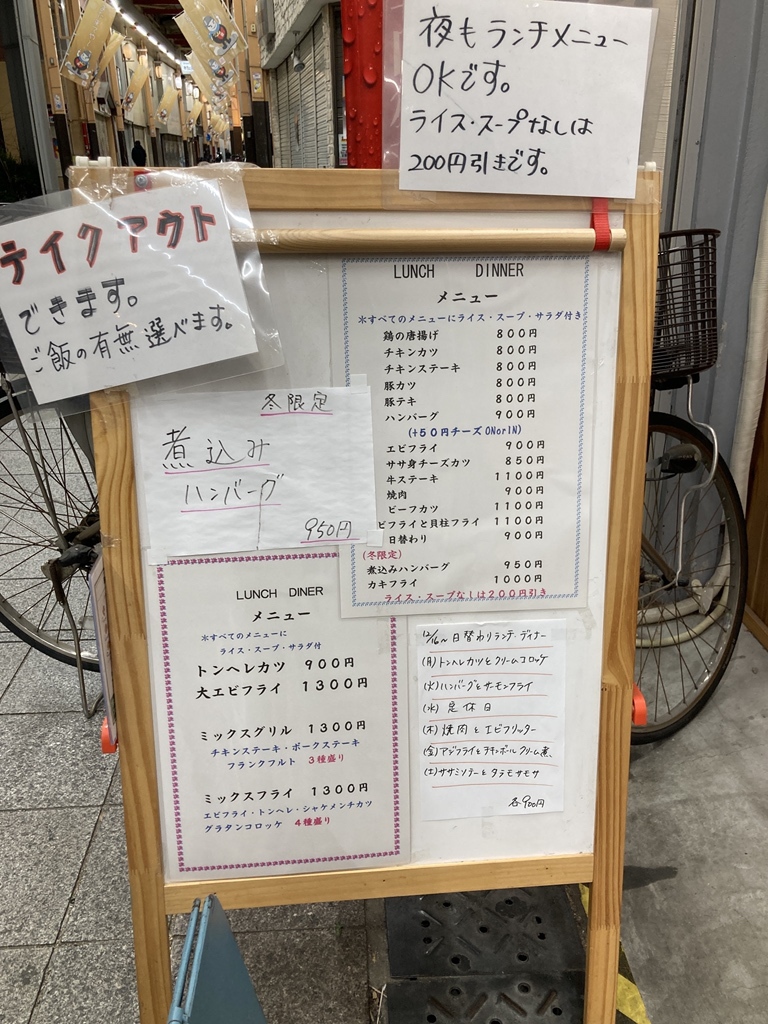 夜もランチメニュー
OKです。
ライス・スープなしは
200円引きです。
テイクアウト
できます。
ご飯の有無選べます。
LUNCH DINNER
メニュー
※すべてのメニューにライス・スープ・サラダ付き
鶏の唐揚げ 800円
チキンカツ 800円
チキンステーキ 800円
豚カツ 800円
豚テキ 800円
ハンバーグ 900円
(+50円チーズONorIN)
エビフライ 900円
ササ身チーズカツ 850円
牛ステーキ 1100円
焼肉 900円
ビーフカツ 1100円
ビフライと貝柱フライ 1100円
日替わり 900円
(冬限定)
煮込みハンバーグ 950円
カキフライ 1000円
ライス・スープなしは200円引き
冬限定
煮込み
ハンバーグ
950円
LUNCH DINER
メニュー
※すべてのメニューに
ライス・スープ・サラダ付
トンヘレカツ 900円
大エビフライ 1300円
ミックスグリル 1300円
チキンステーキ・ポークステーキ
フランクフルト 3種盛り
ミックスフライ 1300円
エビフライ・トンヘレ・シャケメンチカツ
グラタンコロッケ 4種盛り
12/16〜日替わりランチ・ディナー
(月)トンヘレカツとクリームコロッケ
(火)ハンバーグとサーモンフライ
(水) 定休日
(木) 焼肉とエビフリッター
(金)アジフライとチキンボールクリーム煮
(土)ササミソテーと
各900円